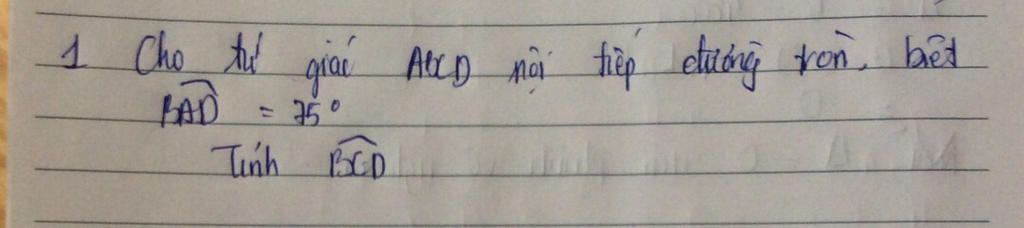 1 Cho tứ giác ABCD nội tiếp đường tròn, biết
BAD = 75°
Tính BCD